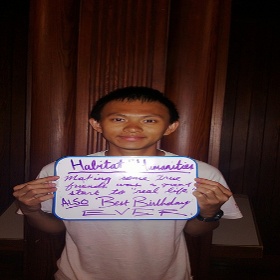 Habitat Humanities
Making some true
friends was a great
start to real life
ALSO Best Birthday
EVER